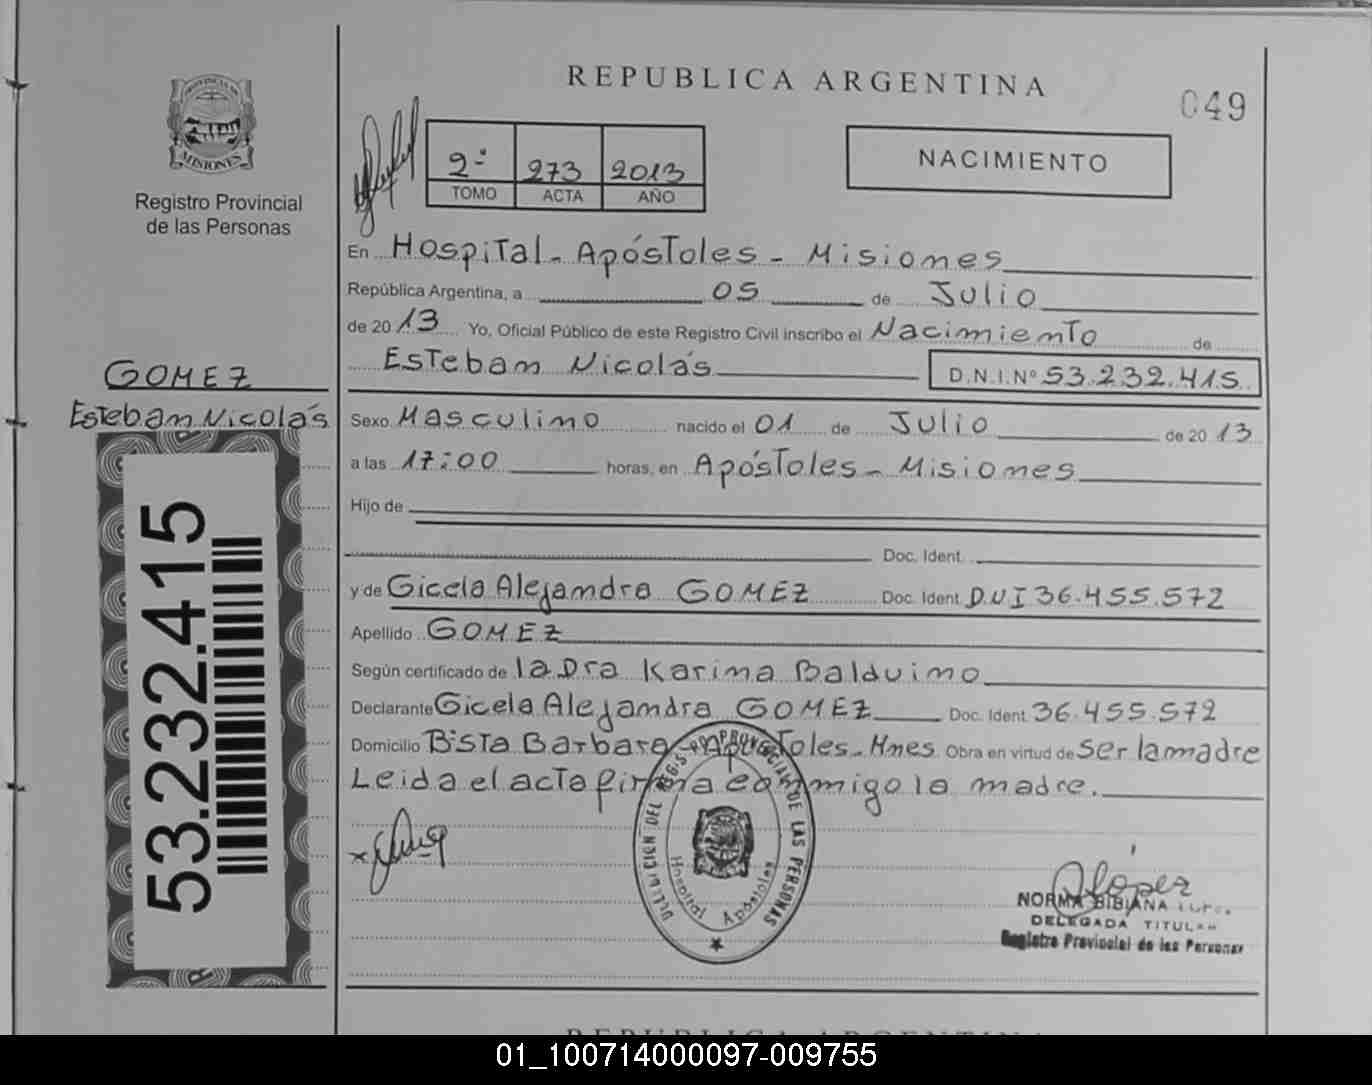 REPUBLICA ARGENTINA
049
PROVINCIA DE
MISIONES
Registro Provincial
de las Personas
2º 273 2013
TOMO ACTA AÑO
NACIMIENTO
En Hospital - Apóstoles - Misiones
República Argentina, a 05 de Julio
de 2013 Yo, Oficial Público de este Registro Civil inscribo el Nacimiento de
Esteban Nicolás D.N.I.Nº 53.232.415
GOMEZ
Esteban Nicolás
53.232.415
Sexo Masculino nacido el 01 de Julio de 2013
a las 17:00 horas, en Apóstoles - Misiones
Hijo de
Doc. Ident.
y de Gicela Alejandra GOMEZ Doc. Ident. DNI 36.455.572
Apellido GOMEZ
Según certificado de la Dra Karina Balduino
Declarante Gicela Alejandra GOMEZ Doc. Ident 36.455.572
Domicilio Bº Sta Barbara - Apóstoles - Mnes Obra en virtud de Ser la madre
Leida el acta firma conmigo la madre.
DELEGACION DEL REGIST. PROVINCIAL DE LAS PERSONAS
Hospital Apóstoles
López
NORMA BIBIANA
DELEGADA TITULAR
Registro Provincial de las Personas
REPUBLICA ARGENTINA
01_100714000097-009755